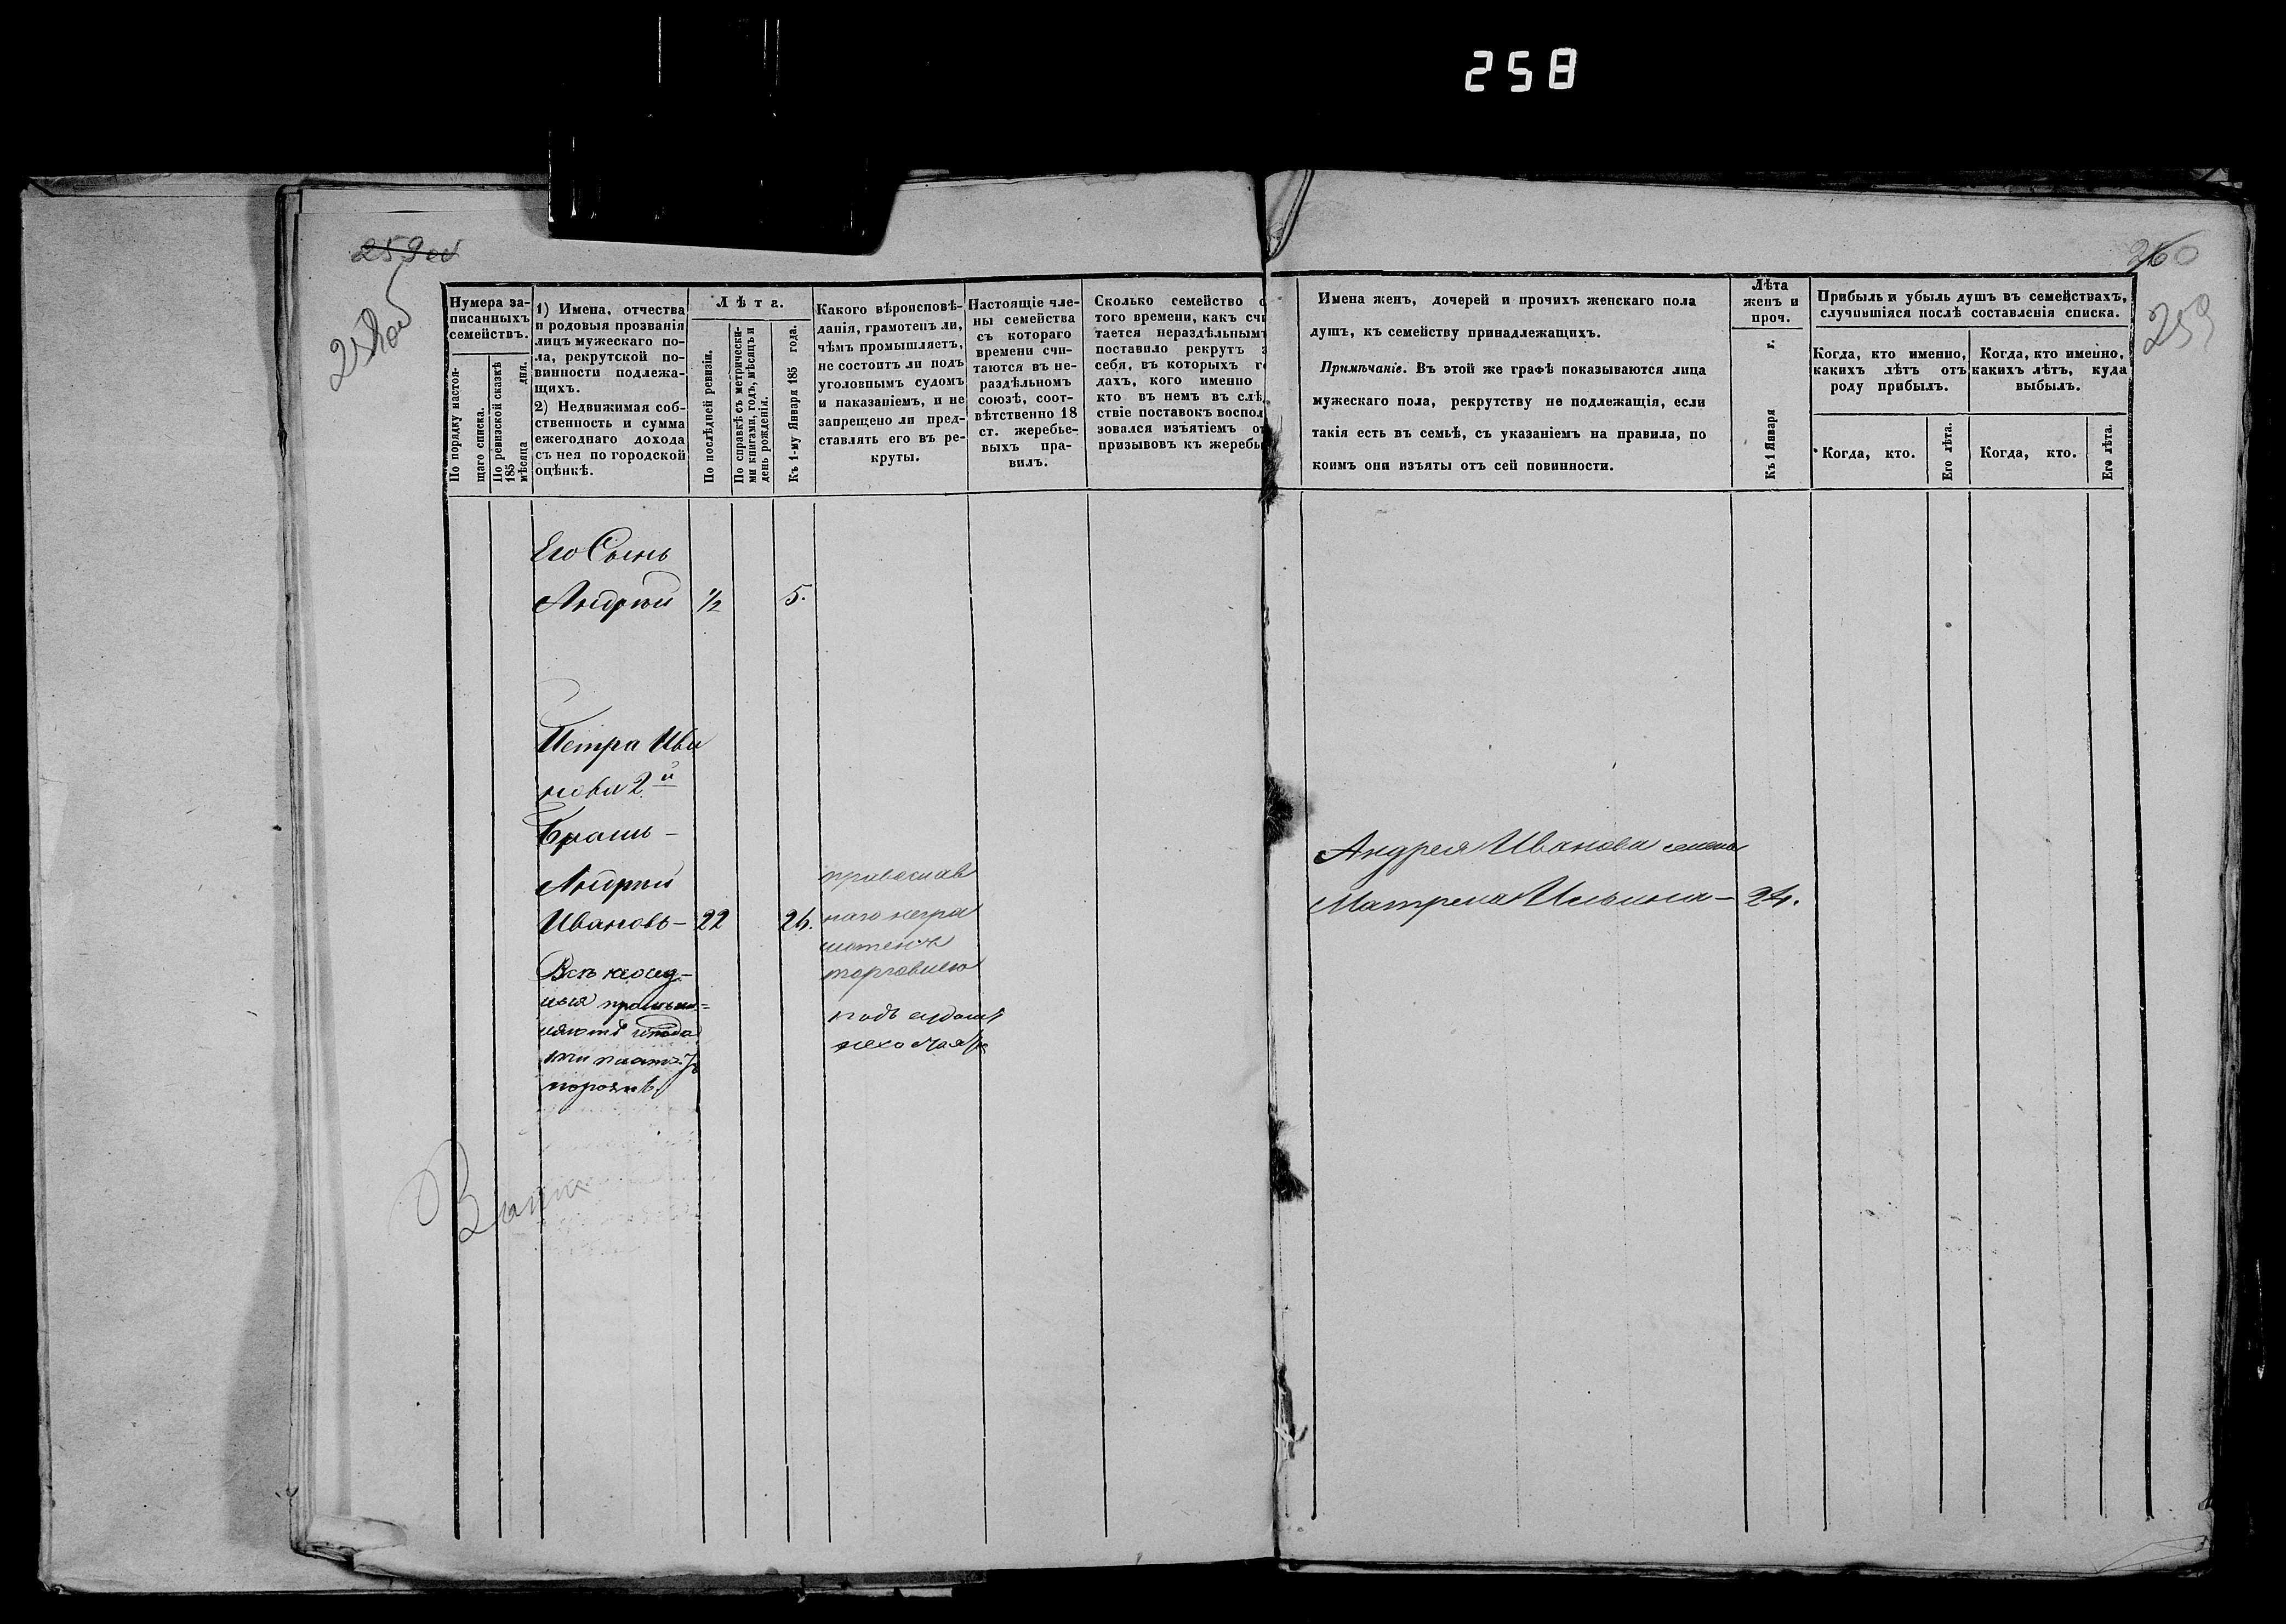 258
259 об
258 об
260
259
Нумера за-
писанныхъ
семействъ.
По порядку настоя-
щаго списка.
По ревизской сказкѣ
185
мѣсяца дня.
1) Имена, отчества
и родовыя прозванія
лицъ мужескаго по-
ла, рекрутской по-
винности подлежа-
щихъ.
2) Недвижимая соб-
ственность и сумма
ежегоднаго дохода
съ нея по городской
оцѣнкѣ.
Лѣта.
По послѣдней ревизіи.
По справкѣ съ метрически-
ми книгами, годъ, мѣсяцъ и
день рожденія.
Къ 1-му Января 185 года.
Какого вѣроисповѣ-
данія, грамотенъ ли,
чѣмъ промышляетъ,
не состоитъ ли подъ
уголовнымъ судомъ
и наказаніемъ, и не
запрещено ли пред-
ставлять его въ ре-
круты.
Настоящіе чле-
ны семейства
съ котораго
времени счи-
таются въ не-
раздѣльномъ
союзѣ, соот-
вѣтственно 18
ст. жеребье-
выхъ пра-
вилъ.
Сколько семейство с
того времени, какъ счи
тается нераздѣльнымъ
поставило рекрутъ з
себя, въ которыхъ го
дахъ, кого именно
кто въ немъ въ слѣд
ствіе поставокъ воспол
зовался изъятіемъ от
призывовъ къ жеребь
Имена женъ, дочерей и прочихъ женскаго пола
душъ, къ семейству принадлежащихъ.
Примѣчаніе. Въ этой же графѣ показываются лица
мужескаго пола, рекрутству не подлежащія, если
такія есть въ семьѣ, съ указаніемъ на правила, по
коимъ они изъяты отъ сей повинности.
Лѣта
женъ и
проч.
Къ 1 Января г.
Прибыль и убыль душъ въ семействахъ,
случившіяся послѣ составленія списка.
Когда, кто именно,
какихъ лѣтъ отъ
роду прибылъ.
Когда, кто именно,
какихъ лѣтъ, куда
выбылъ.
Когда, кто.
Его лѣта.
Когда, кто.
Его лѣта.
Его Сынъ
Андрей 1/2 5.
Петра Ива
нова 2й
Братъ –
Андрей
Ивановъ – 22 26.
православ
наго негра
мотенъ
торговлею
подъ судомъ
Андрея Иванова жена
Матрена Ильина – 24.